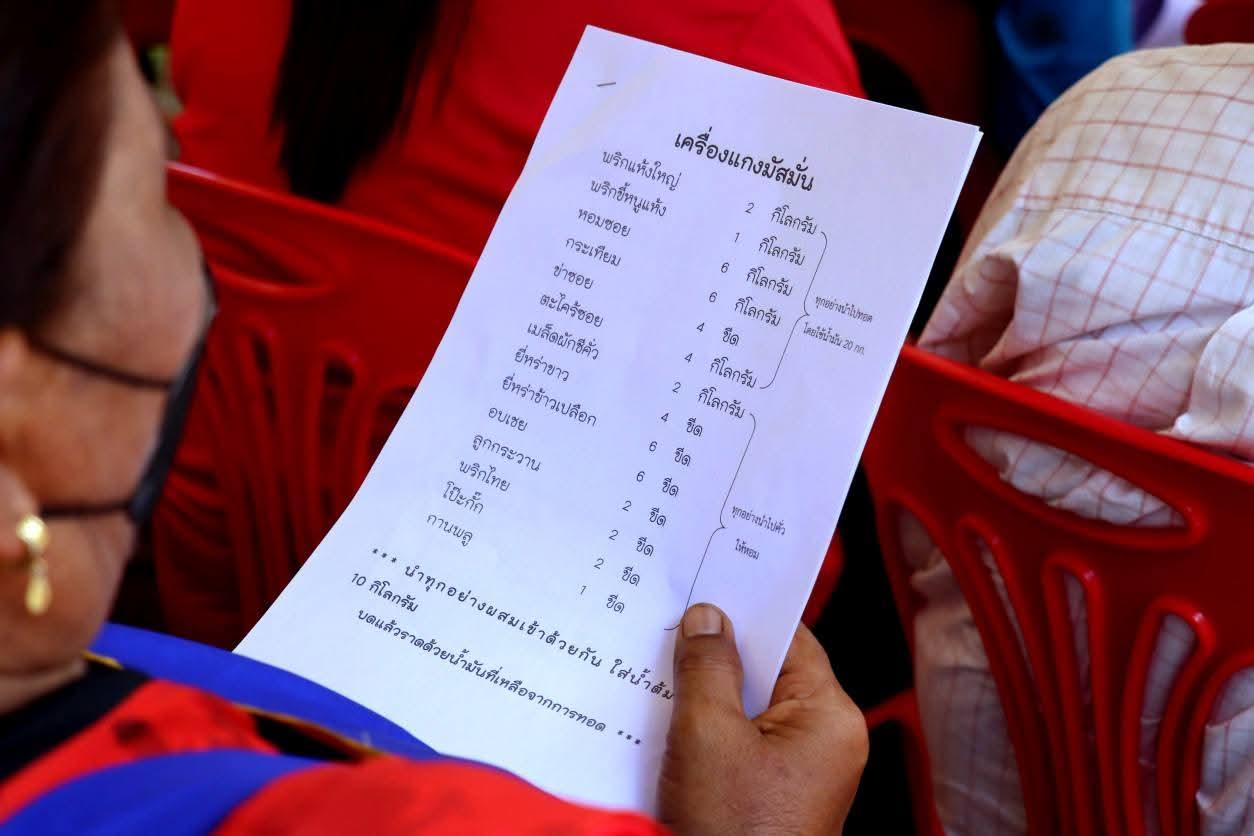 เครื่องแกงมัสมั่น
พริกแห้งใหญ่ 2 กิโลกรัม
พริกขี้หนูแห้ง 1 กิโลกรัม
หอมซอย 6 กิโลกรัม
กระเทียม 6 กิโลกรัม
ข่าซอย 4 ขีด
ตะไคร้ซอย 4 กิโลกรัม
ทุกอย่างนำไปทอด
โดยใช้น้ำมัน 20 กก.
เมล็ดผักชีคั่ว 2 กิโลกรัม
ยี่หร่าขาว 4 ขีด
ยี่หร่าข้าวเปลือก 6 ขีด
อบเชย 6 ขีด
ลูกกระวาน 2 ขีด
พริกไทย 2 ขีด
โป๊ะกั๊ก 2 ขีด
กานพลู 1 ขีด
ทุกอย่างนำไปคั่ว
ให้หอม
*** นำทุกอย่างผสมเข้าด้วยกัน ใส่น้ำต้ม
10 กิโลกรัม
บดแล้วราดด้วยน้ำมันที่เหลือจากการทอด ***